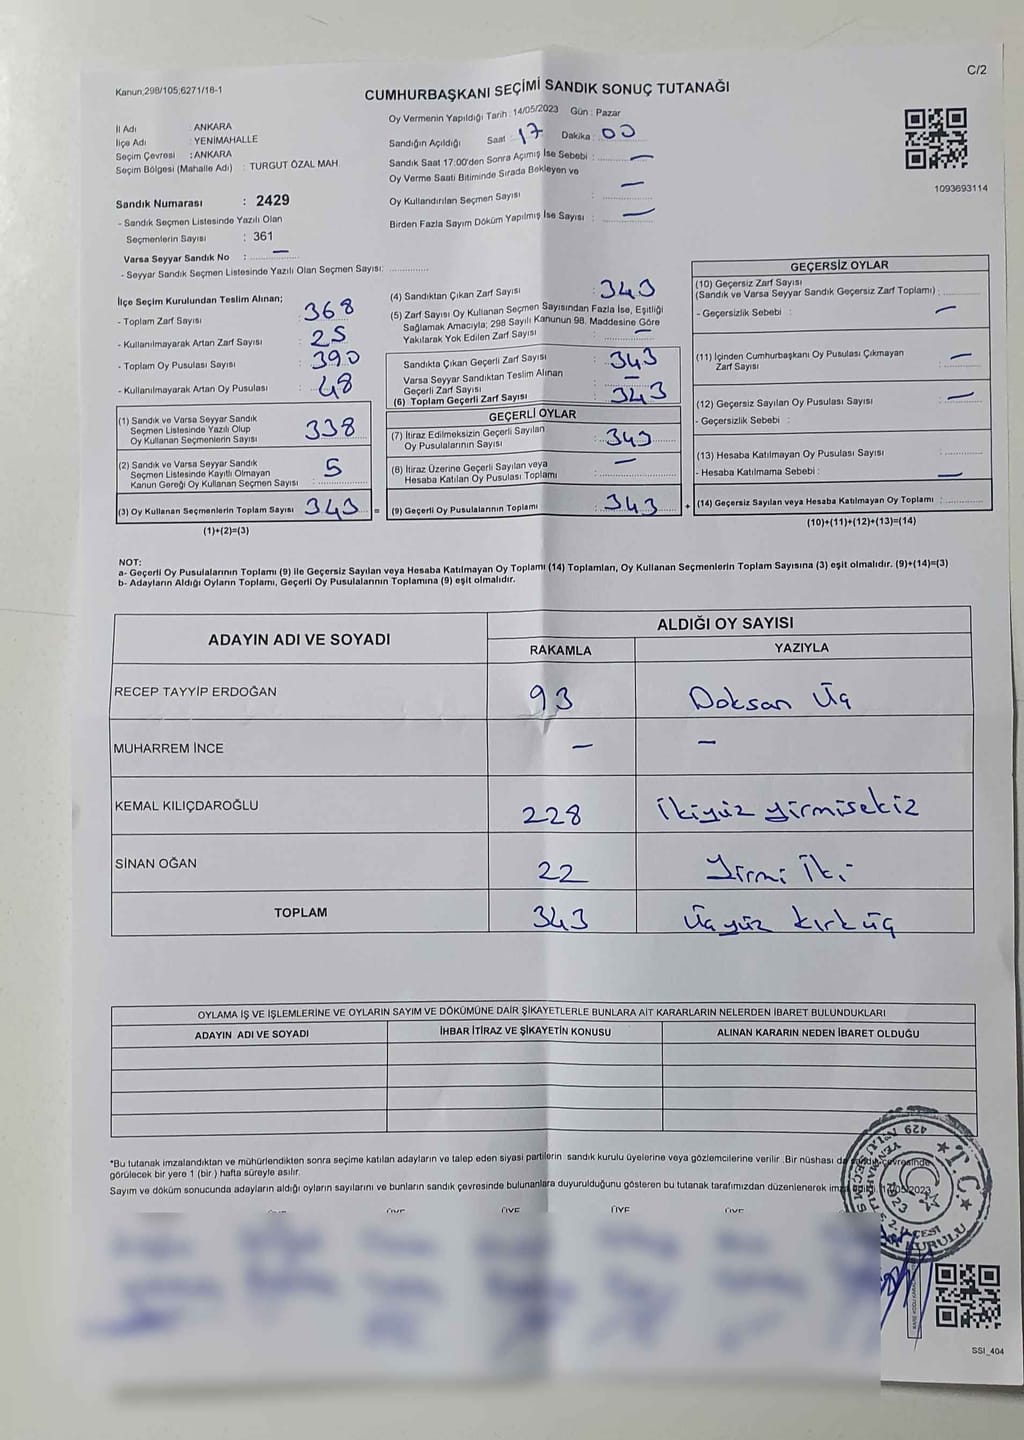 C/2
Kanun;298/105;6271/18-1
CUMHURBAŞKANI SEÇİMİ SANDIK SONUÇ TUTANAĞI
Oy Vermenin Yapıldığı Tarih :14/05/2023 Gün : Pazar
İl Adı : ANKARA
İlçe Adı : YENİMAHALLE
Seçim Çevresi : ANKARA
Seçim Bölgesi (Mahalle Adı) : TURGUT ÖZAL MAH.
Sandığın Açıldığı Saat : 17 Dakika : 00
Sandık Saat 17:00'den Sonra Açımış İse Sebebi : —
Oy Verme Saati Bitiminde Sırada Bekleyen ve
Oy Kullandırılan Seçmen Sayısı : —
Birden Fazla Sayım Döküm Yapılmış İse Sayısı : —
1093693114
Sandık Numarası : 2429
- Sandık Seçmen Listesinde Yazılı Olan
Seçmenlerin Sayısı : 361
Varsa Seyyar Sandık No : —
- Seyyar Sandık Seçmen Listesinde Yazılı Olan Seçmen Sayısı: ..............
İlçe Seçim Kurulundan Teslim Alınan;
- Toplam Zarf Sayısı : 368
- Kullanılmayarak Artan Zarf Sayısı : 25
- Toplam Oy Pusulası Sayısı : 390
- Kullanılmayarak Artan Oy Pusulası : 48
(1) Sandık ve Varsa Seyyar Sandık
Seçmen Listesinde Yazılı Olup
Oy Kullanan Seçmenlerin Sayısı : 338
(2) Sandık ve Varsa Seyyar Sandık
Seçmen Listesinde Kayıtlı Olmayan
Kanun Gereği Oy Kullanan Seçmen Sayısı : 5
(3) Oy Kullanan Seçmenlerin Toplam Sayısı 343 =
(1)+(2)=(3)
(4) Sandıktan Çıkan Zarf Sayısı : 343
(5) Zarf Sayısı Oy Kullanan Seçmen Sayısından Fazla İse, Eşitliği
Sağlamak Amacıyla; 298 Sayılı Kanunun 98. Maddesine Göre
Yakılarak Yok Edilen Zarf Sayısı : —
Sandıkta Çıkan Geçerli Zarf Sayısı : 343
Varsa Seyyar Sandıktan Teslim Alınan
Geçerli Zarf Sayısı : —
(6) Toplam Geçerli Zarf Sayısı : 343
GEÇERLİ OYLAR
(7) İtiraz Edilmeksizin Geçerli Sayılan
Oy Pusulalarının Sayısı : 343
(8) İtiraz Üzerine Geçerli Sayılan veya
Hesaba Katılan Oy Pusulası Toplamı : —
(9) Geçerli Oy Pusulalarının Toplamı : 343 +
GEÇERSİZ OYLAR
(10) Geçersiz Zarf Sayısı
(Sandık ve Varsa Seyyar Sandık Geçersiz Zarf Toplamı) :
- Geçersizlik Sebebi : —
(11) İçinden Cumhurbaşkanı Oy Pusulası Çıkmayan
Zarf Sayısı : —
(12) Geçersiz Sayılan Oy Pusulası Sayısı : —
- Geçersizlik Sebebi :
(13) Hesaba Katılmayan Oy Pusulası Sayısı :
- Hesaba Katılmama Sebebi : —
(14) Geçersiz Sayılan veya Hesaba Katılmayan Oy Toplamı :
(10)+(11)+(12)+(13)=(14)
NOT:
a- Geçerli Oy Pusulalarının Toplamı (9) ile Geçersiz Sayılan veya Hesaba Katılmayan Oy Toplamı (14) Toplamları, Oy Kullanan Seçmenlerin Toplam Sayısına (3) eşit olmalıdır. (9)+(14)=(3)
b- Adayların Aldığı Oyların Toplamı, Geçerli Oy Pusulalarının Toplamına (9) eşit olmalıdır.
ADAYIN ADI VE SOYADI
ALDIĞI OY SAYISI
RAKAMLA YAZIYLA
RECEP TAYYİP ERDOĞAN 93 Doksan Üç
MUHARREM İNCE — —
KEMAL KILIÇDAROĞLU 228 İkiyüz yirmisekiz
SİNAN OĞAN 22 Yirmi İki
TOPLAM 343 Üçyüz kırküç
OYLAMA İŞ VE İŞLEMLERİNE VE OYLARIN SAYIM VE DÖKÜMÜNE DAİR ŞİKAYETLERLE BUNLARA AİT KARARLARIN NELERDEN İBARET BULUNDUKLARI
ADAYIN ADI VE SOYADI İHBAR İTİRAZ VE ŞİKAYETİN KONUSU ALINAN KARARIN NEDEN İBARET OLDUĞU
*Bu tutanak imzalandıktan ve mühürlendikten sonra seçime katılan adayların ve talep eden siyasi partilerin sandık kurulu üyelerine veya gözlemcilerine verilir .Bir nüshası da sandık çevresinde
görülecek bir yere 1 (bir ) hafta süreyle asılır.
Sayım ve döküm sonucunda adayların aldığı oyların sayılarını ve bunların sandık çevresinde bulunanlara duyurulduğunu gösteren bu tutanak tarafımızdan düzenlenerek imza edildi. 14/05/2023
ÜYE ÜYE ÜYE ÜYE
★ T.C. ★
SSI_404